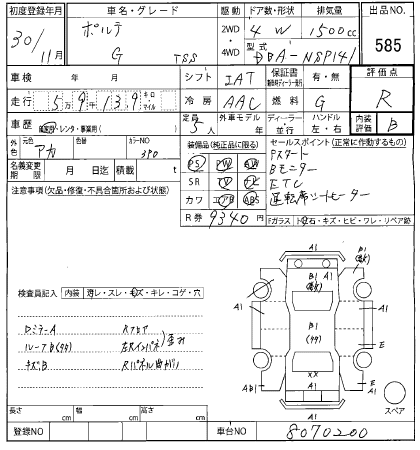 初度登録年月 車名・グレード 駆動 ドア数・形状 排気量 出品NO.
30/11月 ポルテ G TSS 2WD・4WD 4 W 1500cc 585
型式 DBA-NSP141
車検 年 月 シフト IAT 保証書 有・無 評価点
走行 5万9千139 キロ マイル 冷房 AAC 燃料 G R
車歴 自家用・レンタ・事業用( ) 定員 5人 外車モデル ディーラー・並行 ハンドル 左・右 内装評価 B
外色 元色 アカ 色替 カラーNO 3P0
装備品(純正品に限る) セールスポイント(正常に作動するもの)
名義変更期限 月 日迄 積載 t
PS PW
SR TV
カワ エアB ABS
Pスタート
Bモニター
ETC
運転席シートヒーター
注意事項(欠品・修復・不具合箇所および状態)
R券 9340円
Fガラス トビ石・キズ・ヒビ・ワレ・リペア跡
検査員記入 内装 汚レ・スレ・キズ・キレ・コゲ・穴
ルーフB
キズB
A1
B1
A1
B1
A1
A1
B1
A1
E
XX
A1
AB1
E
A1
A1
スペア
長さ cm 幅 cm 高さ cm
登録NO 車台NO 8070200